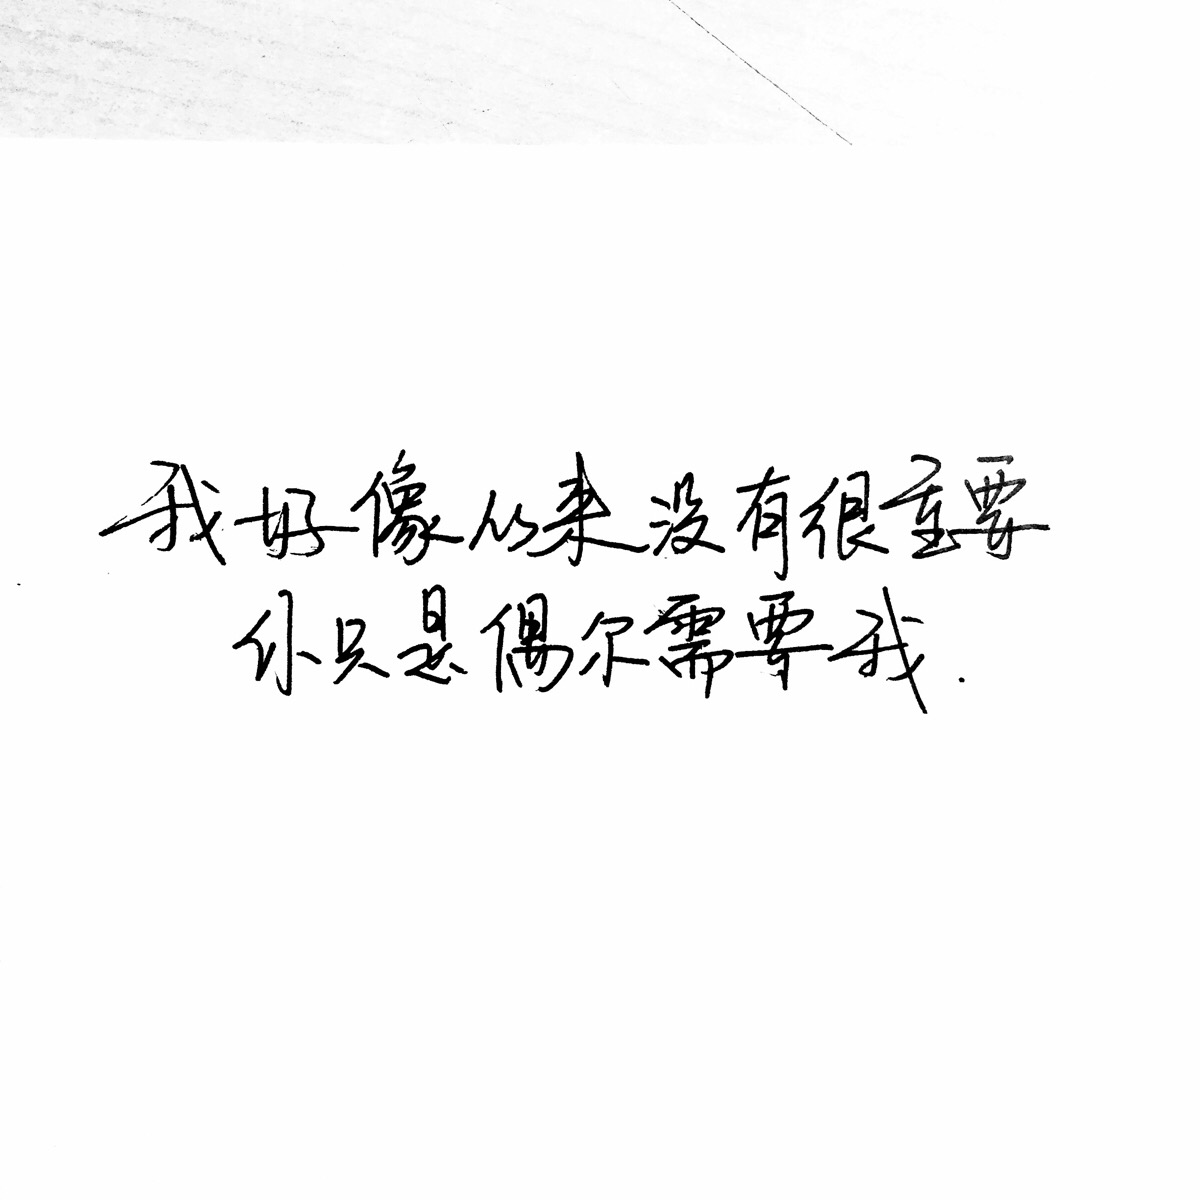 我好像从来没有很重要
你只是偶尔需要我.